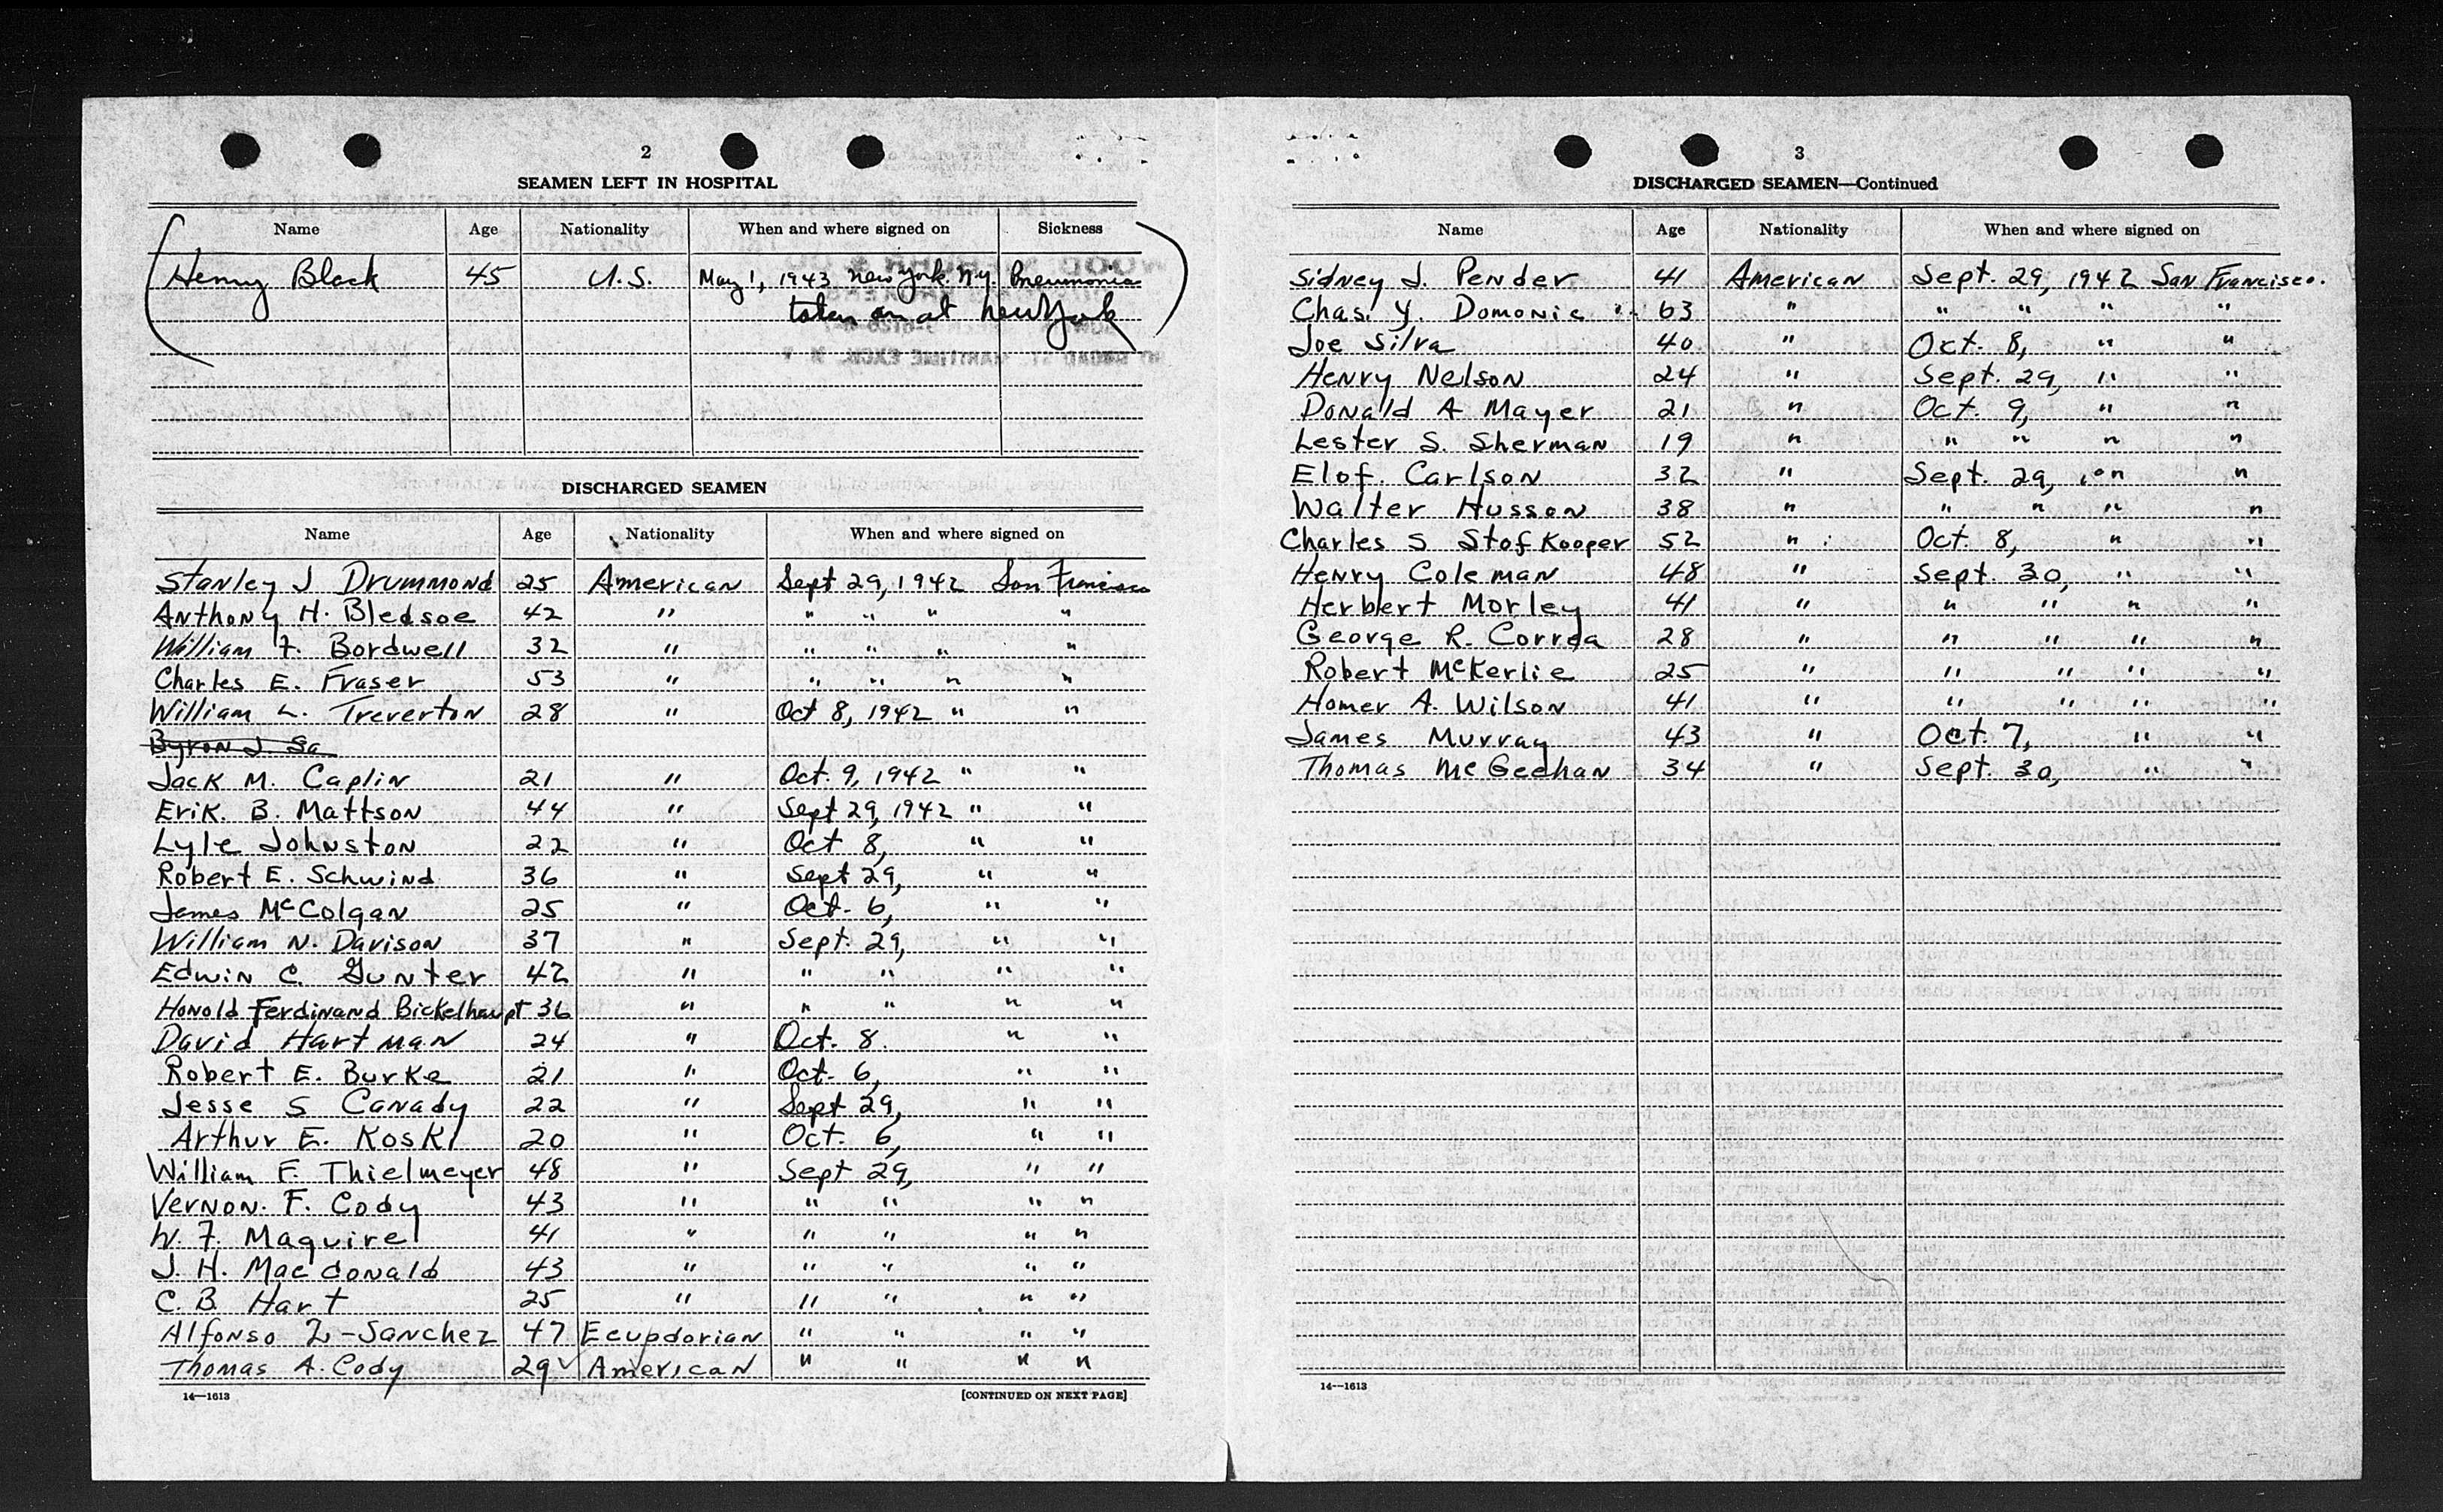 2
SEAMEN LEFT IN HOSPITAL
Name Age Nationality When and where signed on Sickness
Henry Black 45 U.S. May 1, 1943 New York. N.Y. Pneumonia
taken on at New York
DISCHARGED SEAMEN
Name Age Nationality When and where signed on
Stanley J Drummond 25 American Sept 29, 1942 San Francisco
Anthony H. Bledsoe 42 " " " " "
William F. Bordwell 32 " " " " "
Charles E. Fraser 53 " " " " "
William L. Treverton 28 " Oct 8, 1942 " "
Byron J. Sa
Jack M. Caplin 21 " Oct. 9, 1942 " "
Erik. B. Mattson 44 " Sept 29, 1942 " "
Lyle Johnston 22 " Oct 8, " "
Robert E. Schwind 36 " Sept 29, " "
James McColgan 25 " Oct. 6, " "
William N. Davison 37 " Sept. 29, " "
Edwin C. Gunter 42 " " " " "
Honold Ferdinand Bickelhaupt 36 " " " " "
David Hartman 24 " Oct. 8. " "
Robert E. Burke 21 " Oct. 6, " "
Jesse S Canady 22 " Sept 29, " "
Arthur E. Koski 20 " Oct. 6, " "
William F. Thielmeyer 48 " Sept 29, " "
Vernon. F. Cody 43 " " " " "
W. F. Maguire 41 " " " " "
J. H. Macdonald 43 " " " " "
C. B. Hart 25 " " " " "
Alfonso Z-Sanchez 47 Ecupdorian " " " "
Thomas A. Cody 29 American " " " "
14—1613 [CONTINUED ON NEXT PAGE]
3
DISCHARGED SEAMEN—Continued
Name Age Nationality When and where signed on
Sidney J. Pender 41 American Sept. 29, 1942 San Francisco.
Chas. Y. Domonic 63 " " " " "
Joe Silva 40 " Oct. 8, " "
Henry Nelson 24 " Sept. 29, " "
Donald A Mayer 21 " Oct. 9, " "
Lester S. Sherman 19 " " " " "
Elof. Carlson 32 " Sept. 29, " "
Walter Husson 38 " " " " "
Charles S Stofkooper 52 " Oct. 8, " "
Henry Coleman 48 " Sept. 30, " "
Herbert Morley 41 " " " " "
George R. Correa 28 " " " " "
Robert McKerlie 25 " " " " "
Homer A. Wilson 41 " " " " "
James Murray 43 " Oct. 7, " "
Thomas McGeehan 34 " Sept. 30, " "
14—1613